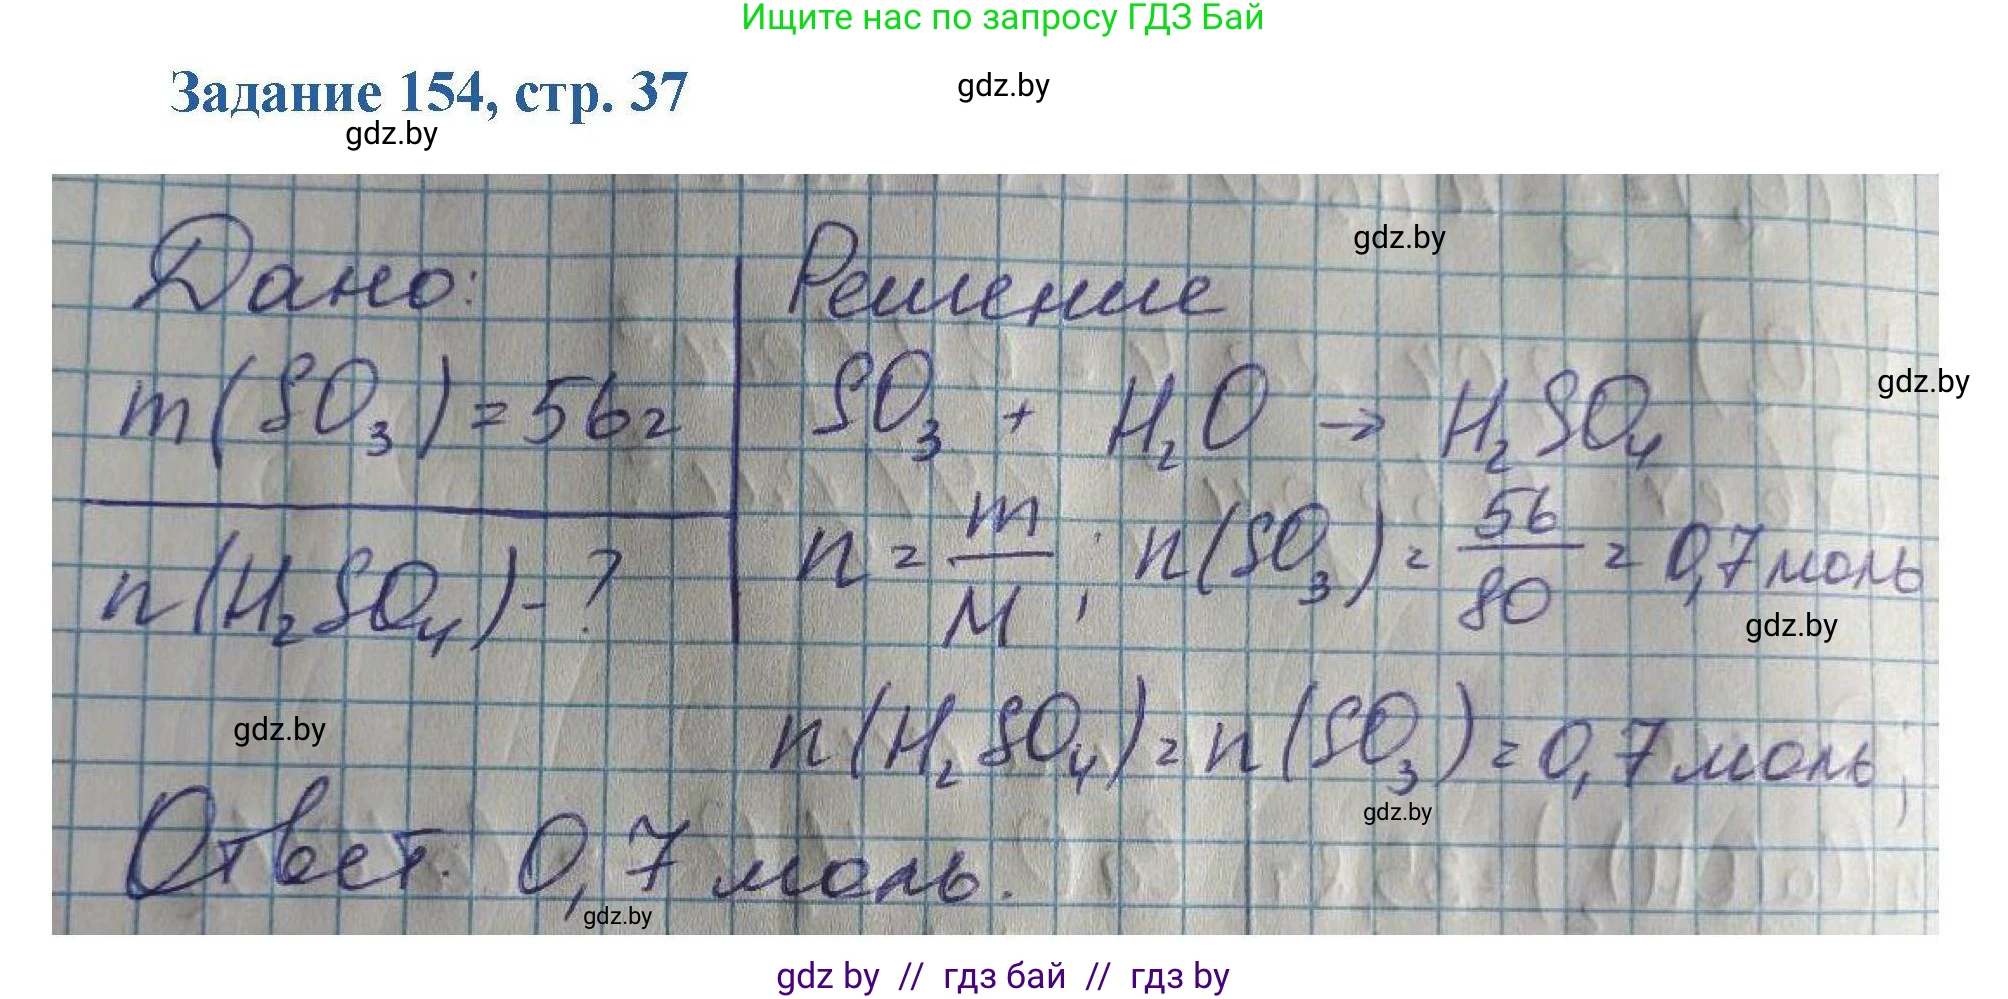 Ищите нас по запросу ГДЗ Бай
Задание 154, стр. 37
gdz.by
gdz.by
Дано:
Решение
gdz.by
m(SO₃) = 56г
SO₃ + H₂O → H₂SO₄
gdz.by
n(H₂SO₄) - ?
n = m/M ; n(SO₃) = 56/80 = 0,7 моль
gdz.by
n(H₂SO₄) = n(SO₃) = 0,7 моль;
gdz.by
gdz.by
Ответ: 0,7 моль.
gdz.by
gdz by // гдз бай // гдз by